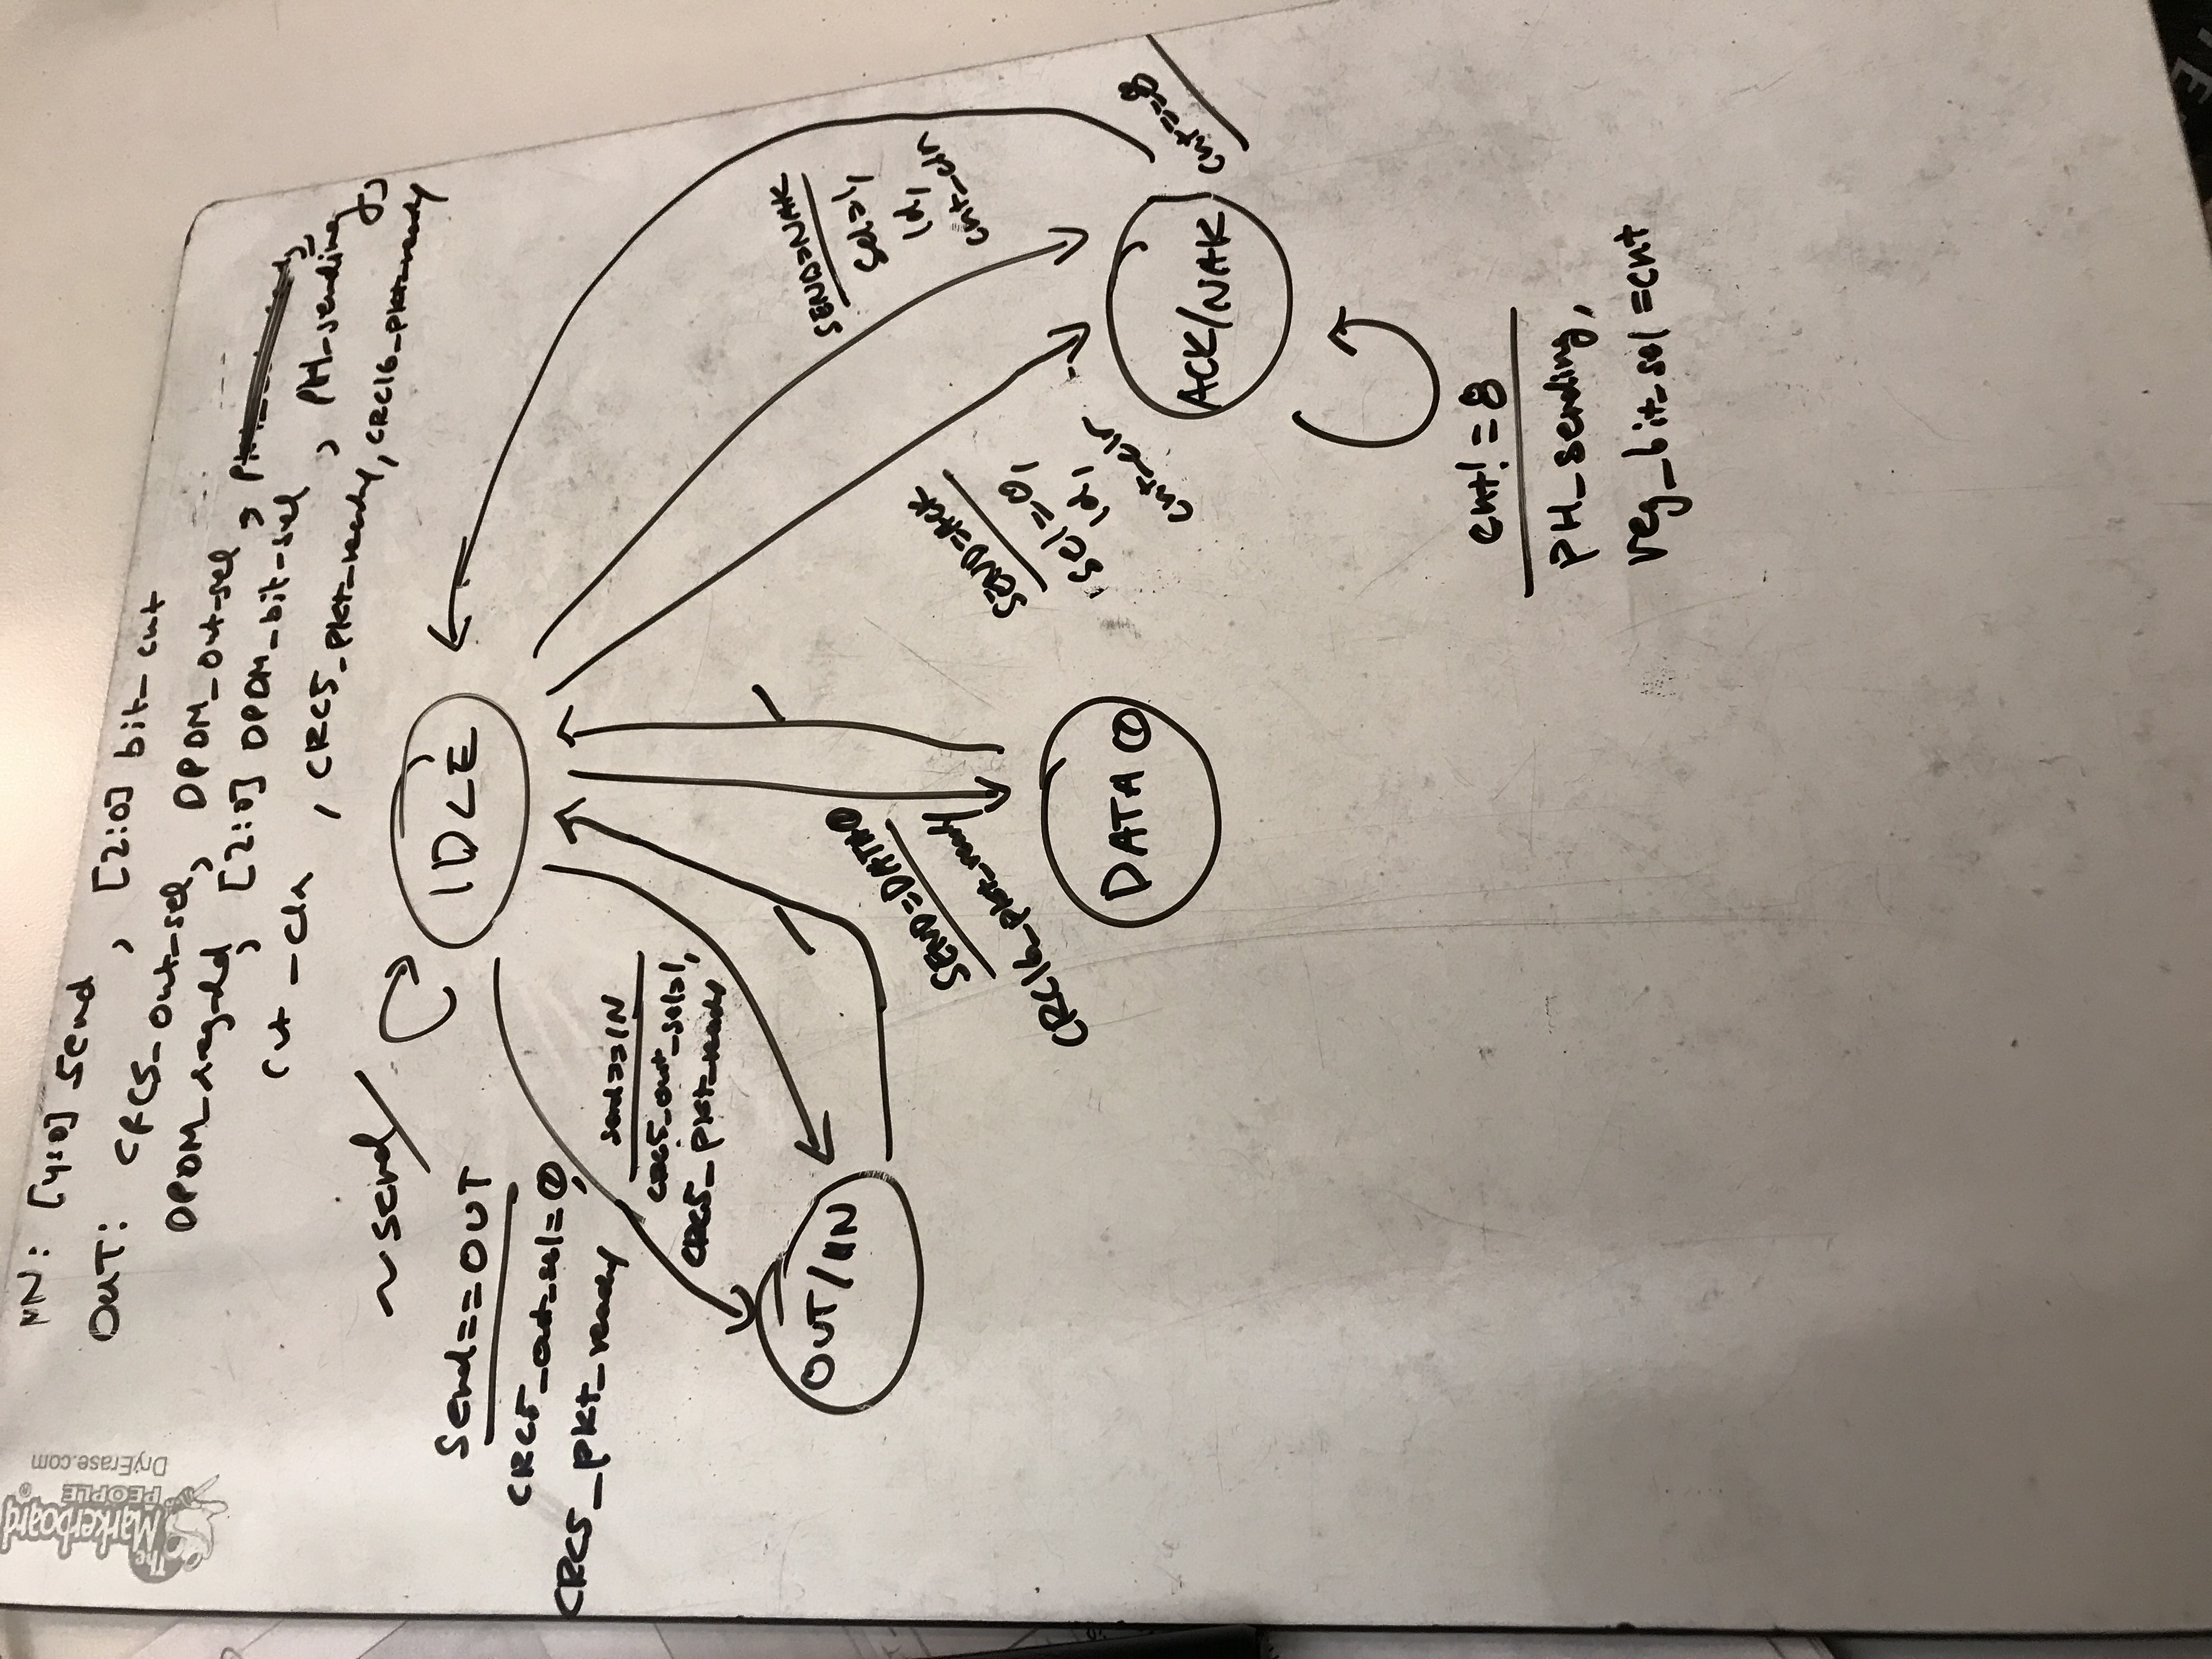 The
Markerboard
PEOPLE®
DryErase.com
IN: [4:0] Send, [2:0] bit_cnt
OUT: CRC5_out_sel, DPDM_out_sel,
DPDM_reg_ld, [2:0] DPDM_bit_sel, PH_sending,
cnt_clr, CRC5_pkt_ready, CRC16_pkt_ready
~send/
IDLE
Send==OUT
CRC5_out_sel=0,
CRC5_pkt_ready
send==IN
CRC5_out_sel=1,
CRC5_pkt_ready
OUT/IN
SEND=DATA0
CRC16_pkt_ready
DATA0
SEND=ACK
sel=0,
ld,
cnt_clr
SEND=NAK
sel=1,
ld,
cnt_clr
ACK/NAK
cnt==8
cnt!=8
PH_sending,
reg_bit_sel=cnt